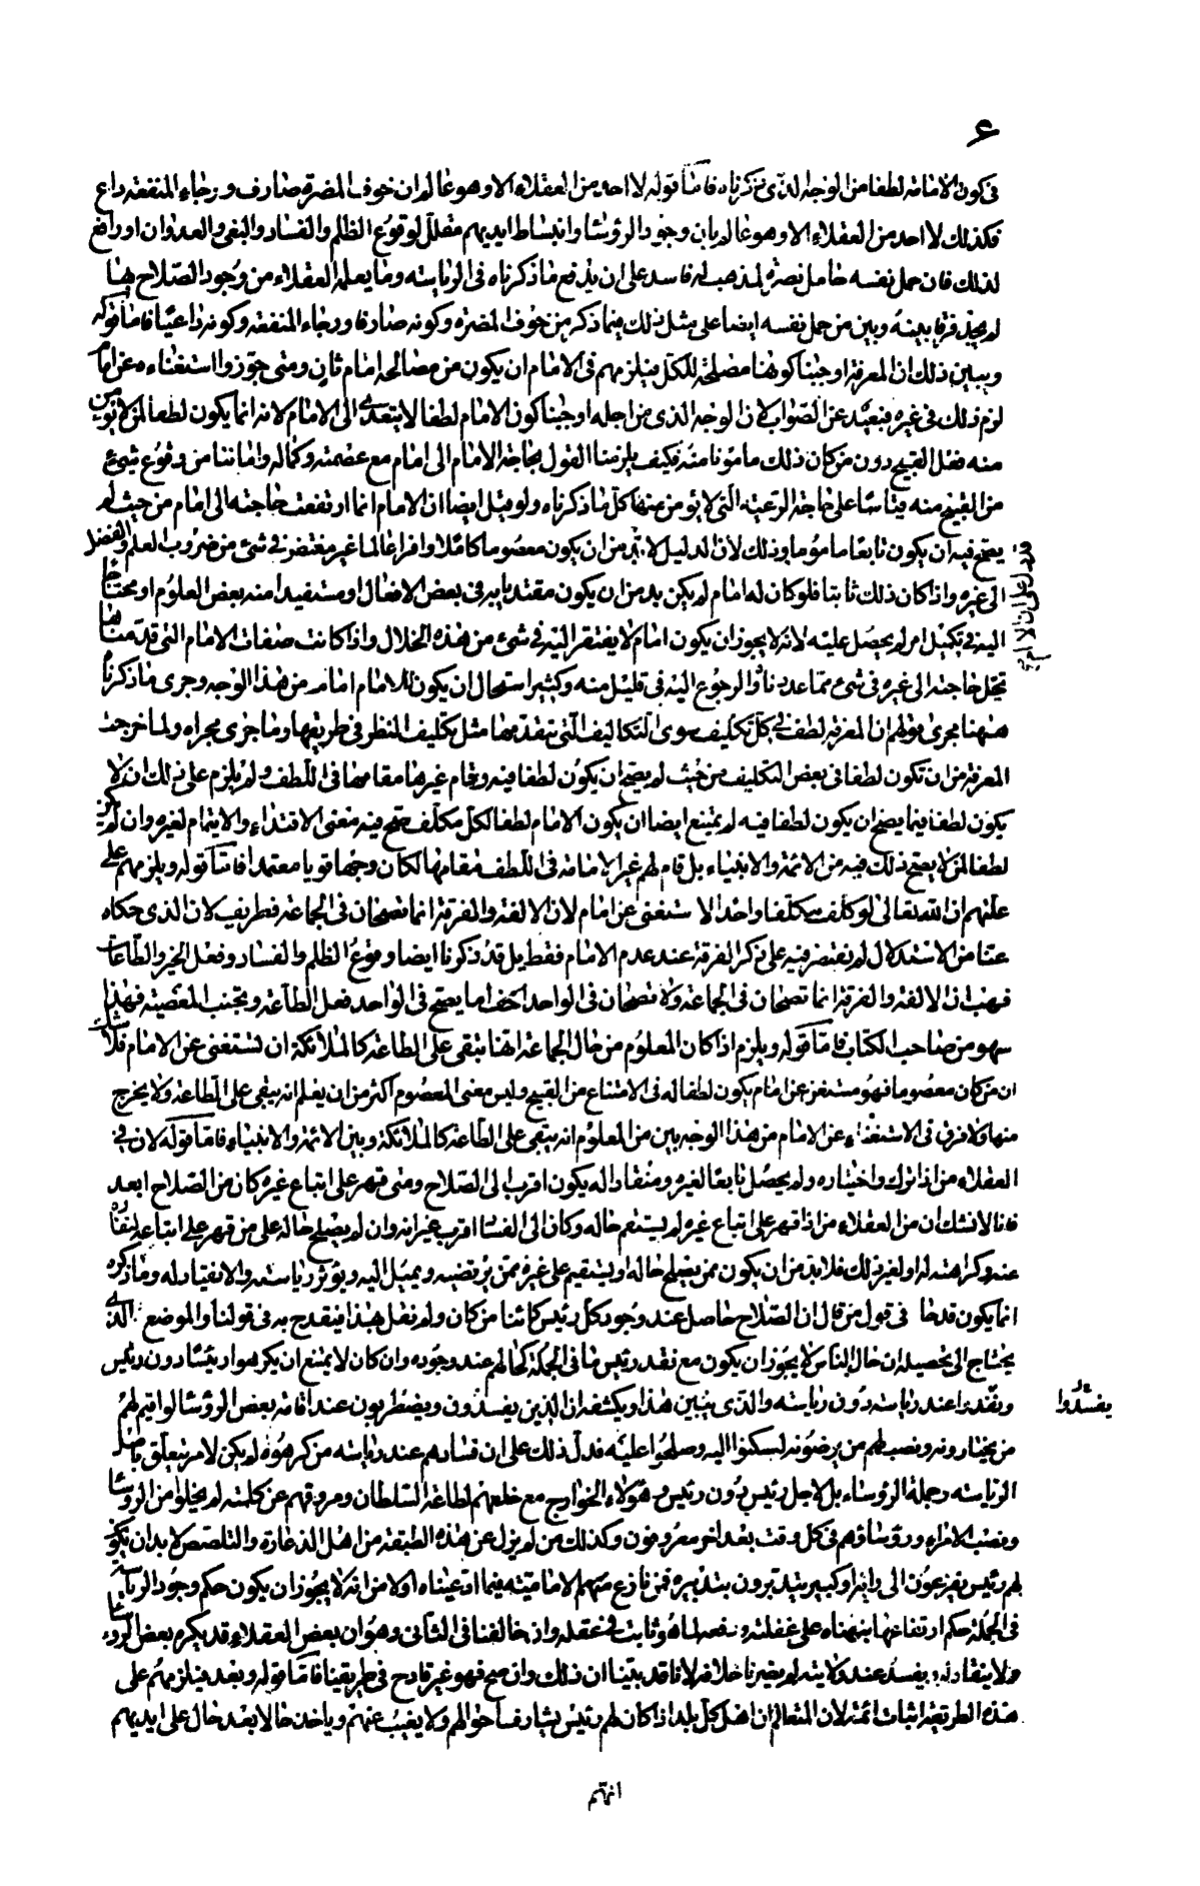 ٤
في كون الامامة لطفا من الوجه الذي نذكره فامّا قوله لا احد من العقلاء الا وهو عالم ان خوف المضرة صارف ورجاء المنفعة داع
فكذلك لا احد من العقلاء الا وهو عالم بان وجود الرؤساء وانبساط ايديهم مقلل لوقوع الظلم والفساد والبغى والعدوان او رافع
لذلك فان حمل نفسه حامل نصرة لمذهب له فاسد على ان يدفع ما ذكرناه فى الرياسة وما يعلمه العقلاء من وجود الصّلاح بها
لم يجد فرقا بينه وبين من حمل نفسه ايضا على مثل ذلك فيما ذكر من خوف المضرة وكونه صارفا ورجاء المنفعة وكونه داعيا فامّا قوله
ويبين ذلك ان المعرفة اوجبنا كونها مصلحة للكل فيلزمهم فى الامام ان يكون من مصالحه امام ثان ومتى جوّزوا استغناءه عن امام
لزم ذلك فى غيره فبعيد عن الصّواب لان الوجه الذى من اجله اوجبنا كون الامام لطفا لا يتعدى الى الامام لانه انما يكون لطفا لمن لا يؤمن
منه فعل القبيح دون من كان ذلك مامونا منه فكيف يلزمنا القول بحاجة الامام الى امام مع عصمته وكماله واماننا من وقوع شىء
من القبيح منه قياسًا على حاجة الرعية التى لا يؤمن منها كل ما ذكرناه ولو قيل ايضا ان الامام انما ارتفعت حاجته الى امام من حيث لم
يصح فيه ان يكون تابعًا مامومًا وذلك لان الدليل لابد من ان يكون معصوما كاملا وافرا عالما غير مفتقر فى شئ من ضروب العلم والفضل
الى غيره واذا كان ذلك ثابتا فلو كان له امام لم يكن بد من ان يكون مقتديا به فى بعض الافعال او مستفيدا منه بعض العلوم او محتاجا
اليه فى تكميل امر لم يحصل عليه لانه لا يجوز ان يكون امام لا يفتقر اليه فى شئ من هذه الخلال واذا كانت صفات الامام التى قدّمناها
تحيل حاجته الى غيره فى شئ مما عددناه والرجوع اليه فى قليل منه وكثير استحال ان يكون للامام امام من هذا الوجه وجرى ما ذكرناه
ههنا مجرى قولهم ان المعرفة لطف فى كل تكليف سوى التكاليف التى تتقدمها مثل تكليف النظر فى طريقها وما جرى مجراه ولما خرجت
المعرفة من ان تكون لطفا فى بعض التكليف من حيث لم يصح ان يكون لطفا فيه وقام غيرها مقامها فى اللطف ولم يلزم على ذلك ان لا
يكون لطفا فيما يصح ان يكون لطفا فيه لم يمتنع ايضا ان يكون الامام لطفا لكل مكلّف يصح فيه معنى الاقتداء والايتمام لغيره وان لم يكن
لطفا لمن لا يصح ذلك فيه من الائمة والانبياء بل قام لهم غير الامامة فى اللطف مقامها لكان وجها قويا معتمدا فامّا قوله ويلزمهم على
علتهم ان الله تعالى لو كلف مكلفا واحدا لاستغنى عن امام لان الالفة والفرقة انما تصحان فى الجماعة فطريف لان الذى حكاه
عنا من الاستدلال لم نقتصر فيه على ذكر الفرقة عند عدم الامام فقط بل قد ذكرنا ايضا وقوع الظلم والفساد وفعل الخير والطّاعات
فهب ان الالفة والفرقة انما تصحان فى الجماعة ولا تصحان فى الواحد اما يصح فى الواحد فعل الطاعة وتجنب المعصية فهذا
سهو من صاحب الكتاب فامّا قوله ويلزم اذا كان المعلوم من حال الجماعة انها تبقى على الطاعة كالملائكة ان تستغنى عن الامام فلا شك
ان من كان معصوما فهو مستغن عن امام يكون لطفا له فى الامتناع من القبيح وليس معنى المعصوم اكثر من ان يعلم انه يبقى على الطاعة ولا يخرج
منها ولا فرق فى الاستغناء عن الامام من هذا الوجه بين من المعلوم انه يبقى على الطاعة كالملائكة وبين الائمة والانبياء فامّا قوله لان فى
العقلاء من اذا ترك واختياره ولم يحصل تابعًا لغيره ومنقادا له يكون اقرب الى الصّلاح ومتى قهر على اتباع غيره كان من الصّلاح ابعد
فانا لا نشك ان من العقلاء من اذا قهر على اتباع غيره لم يستقم حاله وكان الى الفساد اقرب غير انه وان لم يصلح حاله على من قهر على اتباعه لنفاره
عنه وكراهته له او لغير ذلك فلا بد من ان يكون ممن يصلح حاله او يستقيم على غيره ممن يرتضيه ويميل اليه ويؤثر رياسته والانقياد له وما ذكره
انما يكون قدحا فى قول من قال ان الصّلاح حاصل عند وجود كل رئيس كائنا من كان ولم نقل بهذا فيقدح به فى قولنا والموضع الذى
يحتاج الى تحصيله ان حال الناس لا يجوز ان يكون مع فقد رئيس ما فى الجملة كحالهم عند وجوده وان كان لا يمتنع ان يكرهوا رئيسًا دون رئيس
ويفسدوا عند رياسة دون رياسة والذى يبين هذا ويكشفه ان الذين يفسدون ويضطربون عند اقامة بعض الرؤساء لو اقيم لهم
من يختارونه ونصب لهم من يرضونه لسكنوا اليه وصلحوا عليه فدلّ ذلك على ان فسادهم عند رياسة من كرهوه لم يكن لامر يتعلق باصل
الرياسة وجملة الرؤساء بل لاجل رئيس دون رئيس وهؤلاء الخوارج مع خلعهم لطاعة السلطان ومروقهم عن كلمته لم يخلوا من الرؤساء
ونصب الامراء ورؤساؤهم فى كل وقت بعد اخر معروفون وكذلك من لم يزل عن هذه الطبقة من اهل الذعارة والتلصص لا بد ان يكون
لهم رئيس يفزعون الى رايه وكبير يتدبرون بتدبيره فمن نازع منهم الامامية فيما ادعيناه اولا من انه لا يجوز ان يكون حكم وجود الرياسة
فى الجملة حكم ارتفاعها نبهناه على غفلته وثابت فى عقله وان خالفنا فى الثانى وهو ان بعض العقلاء قد يكره بعض الرؤساء
ولا ينقاد له ويفسد عند ولايته لم يضرنا خلافه لانا قد بيّنا ان ذلك وان صح فهو غير قادح فى طريقتنا فامّا قوله وبعد فيلزمهم على
هذه الطريقة اثبات ائمة لان المتعالم ان اهل كل بلد اذا كان لهم رئيس يشارف احوالهم ولا يغيب عنهم وياخذ حالا بعد حال على ايديهم
قد دل على ان الامام
يفسدوا
انهم